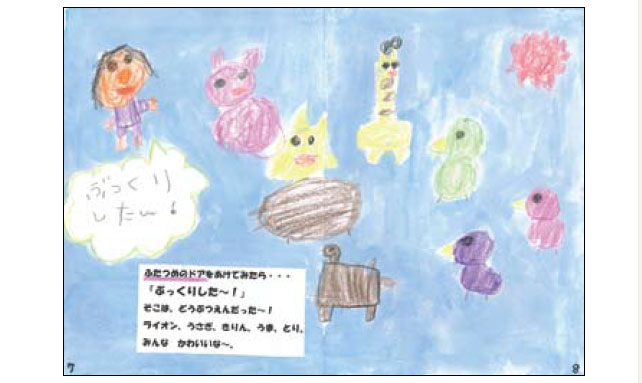 ぶっくり
した〜!
ふたつめのドアをあけてみたら・・・
「ぶっくりした〜!」
そこは、どうぶつえんだった〜!
ライオン、うさぎ、きりん、うま、とり、
みんな かわいいな〜。
7
8